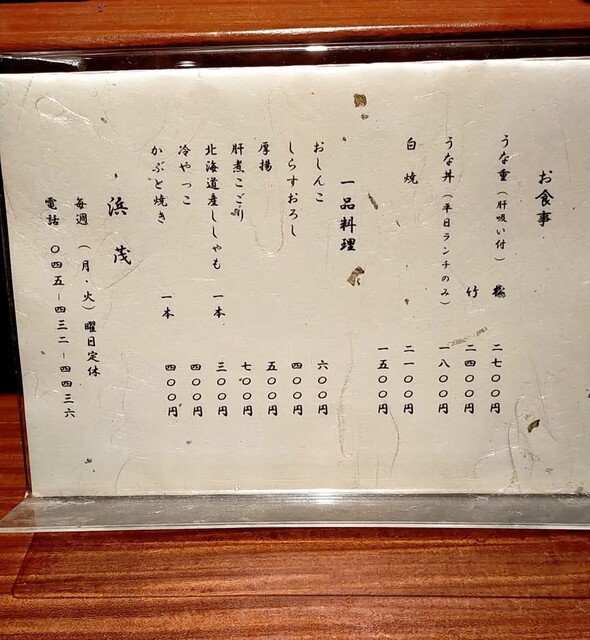 お食事
うな重（肝吸い付） 松 二七〇〇円
竹 二四〇〇円
うな丼（平日ランチのみ） 一八〇〇円
白焼 二一〇〇円
一五〇〇円
一品料理
おしんこ 六〇〇円
しらすおろし 四〇〇円
厚揚 五〇〇円
肝煮こごり 七〇〇円
北海道産ししゃも 一本 三〇〇円
冷やっこ 四〇〇円
かぶと焼き 一本 四〇〇円
浜茂
毎週（月・火）曜日定休
電話 〇四五ー四三二ー四四三六